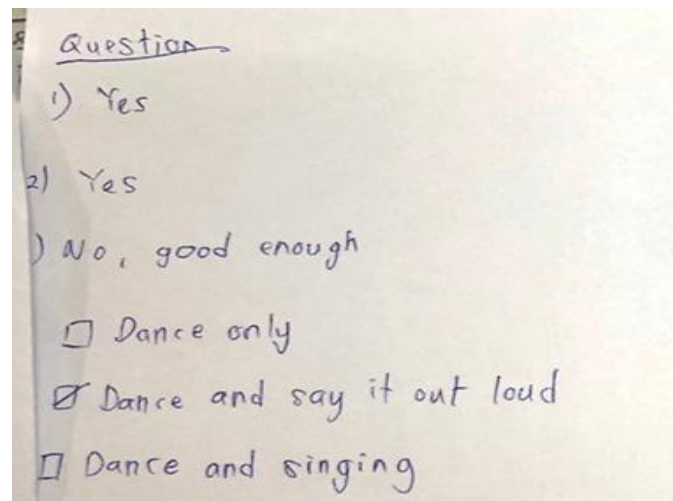 Question
1) Yes
2) Yes
) No, good enough
☐ Dance only
☑ Dance and say it out loud
☐ Dance and singing